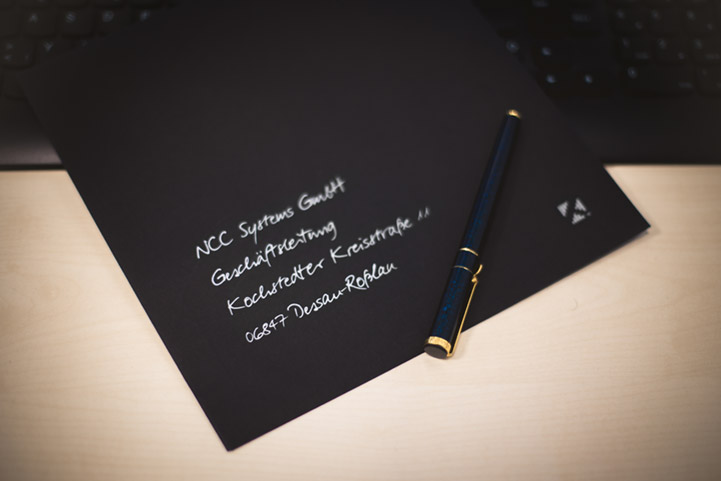 NCC Systems GmbH
Geschäftsleitung
Kochstedter Kreisstraße 11
06847 Dessau-Roßlau